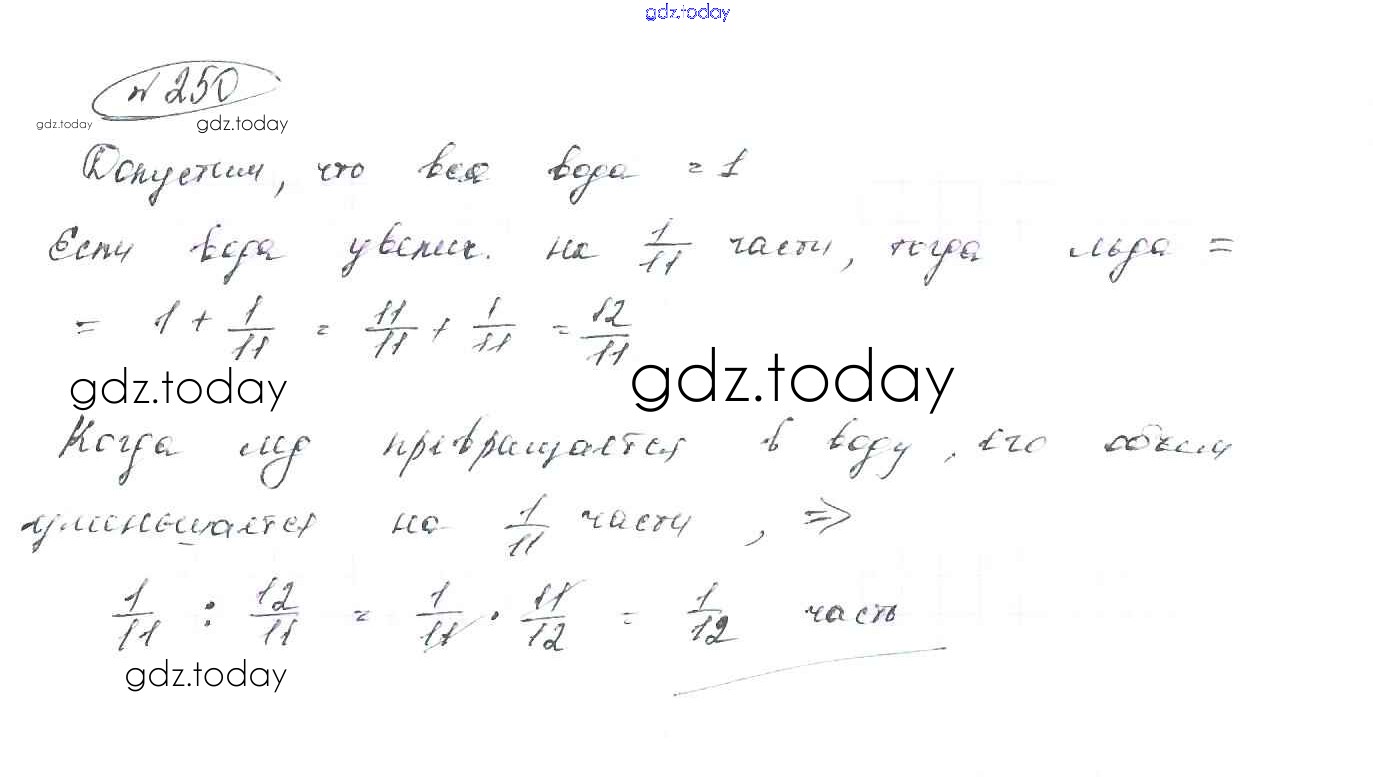 gdz.today
№ 250
gdz.today gdz.today
Допустим, что вся вода = 1
Если вода увелич. на 1/11 части, тогда льда =
= 1 + 1/11 = 11/11 + 1/11 = 12/11
gdz.today gdz.today
Когда лёд превращается в воду, его объем
уменьшается на 1/11 части, ⇒
1/11 : 12/11 = 1/11 · 11/12 = 1/12 часть
gdz.today